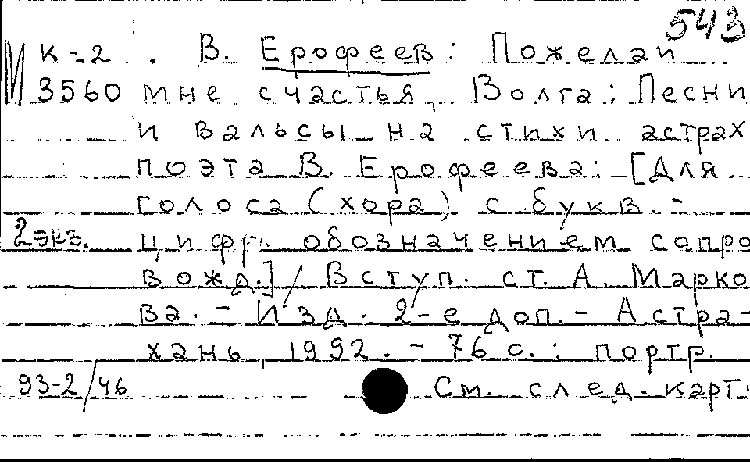 543
К-2 . В. Ерофеев: Пожелай
И 3560 мне счастья, Волга: Песни
и вальсы на стихи астрах
поэта В. Ерофеева: [Для
голоса (хора) с букв.-
2 экз. цифр. обозначением сопро
вожд.] / Вступ. ст. А. Марко
ва. - Изд. 2-е доп. - Астра-
хань, 1992. - 76 с.: портр.
93-2/46 См. след. карт.